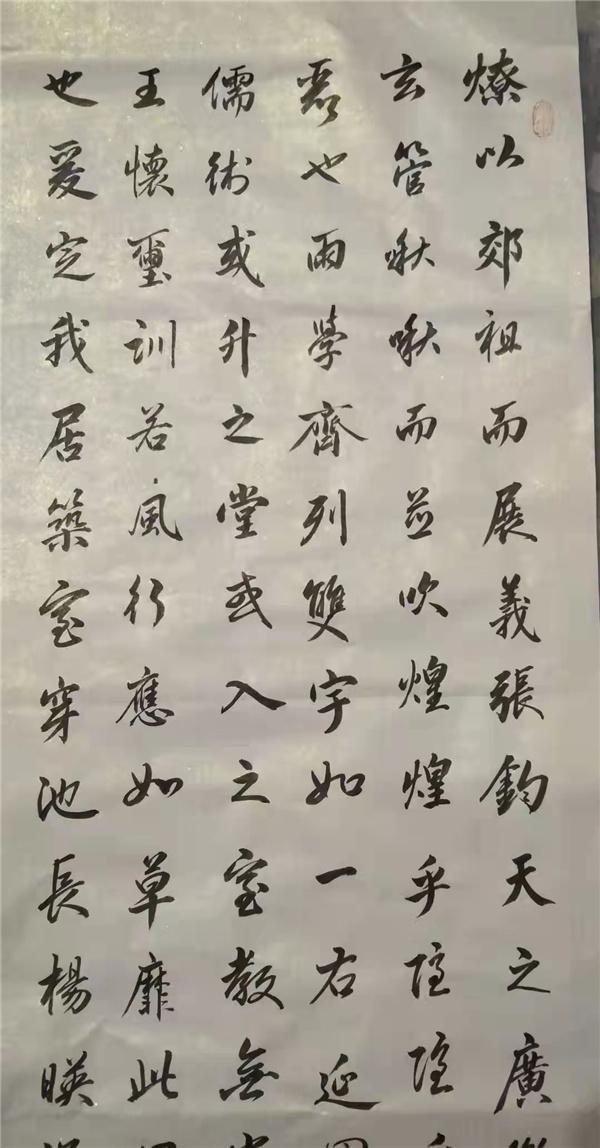 燎以郊祖而展義張鈞天之廣
玄管啾啾而並吹煌煌乎隱隱
麗也兩學齊列雙宇如一右延
儒術或升之堂或入之室教無
王懷璽訓若風行應如草靡此
也爰定我居築室穿池長楊暎